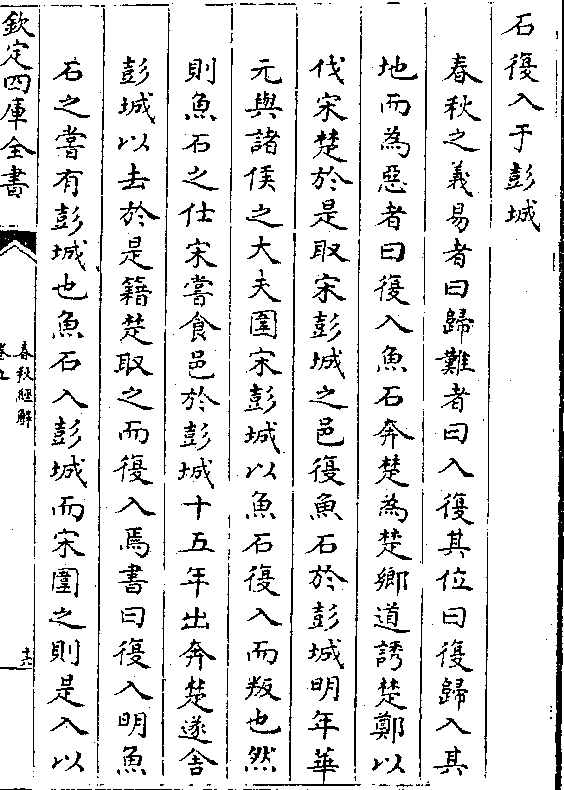 石復入于彭城
春秋之義易者曰歸難者曰入復其位曰復歸入其
地而為惡者曰復入魚石奔楚為楚鄉道誘楚鄭以
伐宋楚於是取宋彭城之邑復魚石於彭城明年華
元與諸侯之大夫圍宋彭城以魚石復入而叛也然
則魚石之仕宋嘗食邑於彭城十五年出奔楚遂舎
彭城以去於是籍楚取之而復入焉書曰復入明魚
石之嘗有彭城也魚石入彭城而宋圍之則是入以
欽定四庫全書
春秋經解
卷九
十六